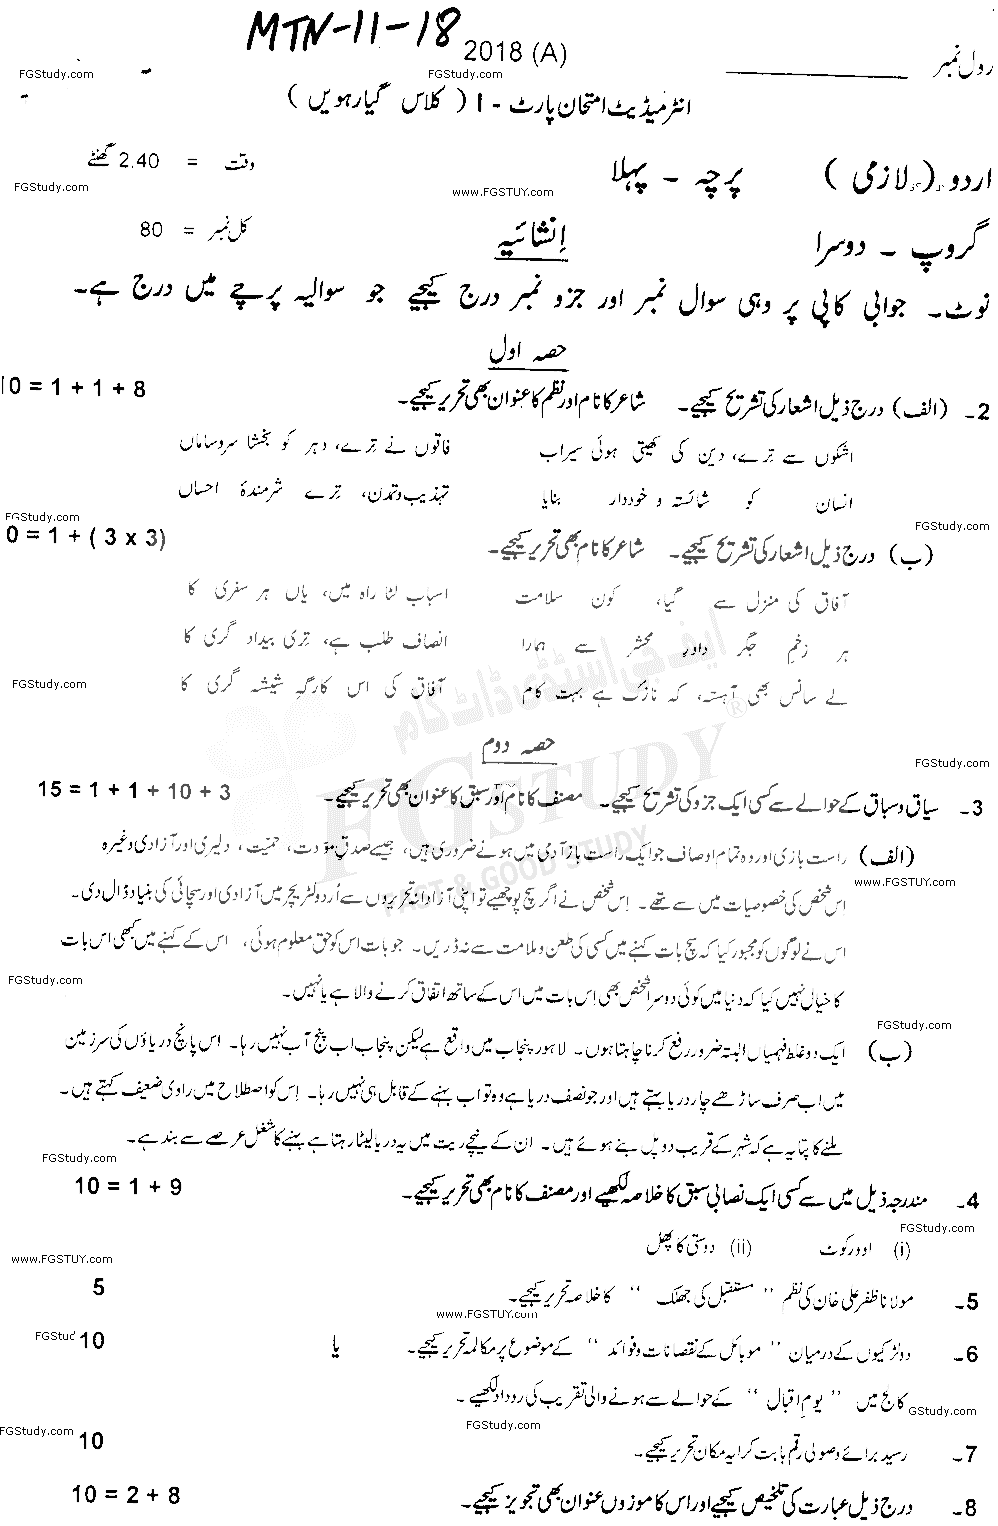 MTN-11-18
2018 (A)
رول نمبر
FGStudy.com FGStudy.com
انٹرمیڈیٹ امتحان پارٹ - I ( کلاس گیارھویں )
اردو (لازمی ) پرچہ ـ پہلا وقت = 2.40 گھنٹے
FGStudy.com www.FGSTUY.com
گروپ ـ دوسرا اِنشائیہ کل نمبر = 80
نوٹ۔ جوابی کاپی پر وہی سوال نمبر اور جزو نمبر درج کیجیے جو سوالیہ پرچے میں درج ہے۔
حصہ اول
2۔ (الف) درج ذیل اشعار کی تشریح کیجیے۔ شاعر کا نام اور نظم کا عنوان بھی تحریر کیجیے۔ 10 = 1 + 1 + 8
اشکوں سے تِرے، دین کی کھیتی ہوئی سیراب فاقوں نے تِرے، دہر کو بخشا سروساماں
انسان کو شائستہ و خوددار بنایا تہذیب و تمدن، تِرے شرمندۂ احساں
FGStudy.com FGStudy.com
(ب) درج ذیل اشعار کی تشریح کیجیے۔ شاعر کا نام بھی تحریر کیجیے۔ 0 = 1 + ( 3 x 3)
آفاق کی منزل سے گیا، کون سلامت اسباب لٹا راہ میں، یاں ہر سفری کا
ہر زخمِ جگر داورِ محشر سے ہمارا انصاف طلب ہے، تِری بیداد گری کا
لے سانس بھی آہستہ، کہ نازک ہے بہت کام آفاق کی اس کارگہِ شیشہ گری کا
FGStudy.com
ایف جی اسٹڈی ڈاٹ کام
FGSTUDY ®
FAST & GOOD STUDY
حصہ دوم
FGStudy.com
3۔ سیاق و سباق کے حوالے سے کسی ایک جزو کی تشریح کیجیے۔ مصنف کا نام اور سبق کا عنوان بھی تحریر کیجیے۔ 15 = 1 + 1 + 10 + 3
(الف) راست بازی اور وہ تمام اوصاف جو ایک راست باز آدمی میں ہونے ضروری ہیں، جیسے صدقِ مودت، حمیت، دلیری اور آزادی وغیرہ
www.FGSTUY.com
اس شخص کی خصوصیات میں سے تھے۔ اِس شخص نے اگر سچ پوچھیے تو اپنی آزادانہ تحریروں سے اُردو لٹریچر میں آزادی اور سچائی کی بنیاد ڈال دی۔
اس نے لوگوں کو مجبور کیا کہ سچ بات کہنے میں کسی کی طعن و ملامت سے نہ ڈریں۔ جو بات اس کو حق معلوم ہوئی، اس کے کہنے میں کبھی اس بات
FGStudy.com
کا خیال نہیں کیا کہ دنیا میں کوئی دوسرا شخص بھی اِس بات میں اس کے ساتھ اتفاق کرنے والا ہے یا نہیں۔
FGStudy.com
(ب) ایک دو غلط فہمیاں البتہ ضرور رفع کرنا چاہتا ہوں۔ لاہور پنجاب میں واقع ہے لیکن پنجاب اب پنج آب نہیں رہا۔ اس پانچ دریاؤں کی سرزمین
میں اب صرف ساڑھے چار دریا بہتے ہیں اور جو نصف دریا ہے وہ تو اب بہنے کے قابل ہی نہیں رہا۔ اِس کو اصطلاح میں راوی ضعیف کہتے ہیں۔
ملنے کا پتا یہ ہے کہ شہر کے قریب دو پل بنے ہوئے ہیں۔ ان کے نیچے ریت میں یہ دریا لیٹا رہتا ہے بہنے کا شغل عرصے سے بند ہے۔
FGStudy.com
4۔ مندرجہ ذیل میں سے کسی ایک نصابی سبق کا خلاصہ لکھیے اور مصنف کا نام بھی تحریر کیجیے۔ 10 = 1 + 9
FGStudy.com
(i) اوورکوٹ (ii) دوستی کا پھل
www.FGSTUY.com
5۔ مولانا ظفر علی خان کی نظم " مستقبل کی جھلک " کا خلاصہ تحریر کیجیے۔ 5
www.FGSTUY.com
6۔ دو لڑکیوں کے درمیان " موبائل کے نقصانات و فوائد " کے موضوع پر مکالمہ تحریر کیجیے۔ یا 10
FGStud
کالج میں " یومِ اقبال " کے حوالے سے ہونے والی تقریب کی روداد لکھیے۔
FGStudy.com
FGStudy.com FGStudy.com
7۔ رسید برائے وصولی رقم بابت کرایہ مکان تحریر کیجیے۔ 10
8۔ درج ذیل عبارت کی تلخیص کیجیے اور اس کا موزوں عنوان بھی تجویز کیجیے۔ 10 = 2 + 8